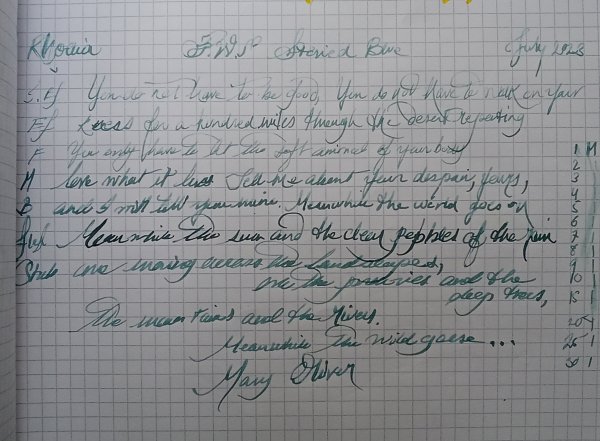 Rhodia F.W.P Storied Blue July 2023
S.Ef You do not have to be good, You do not have to walk on your
Ef knees for a hundred miles through the desert repeating
F You only have to let the soft animal of your body
M love what it loves Tell me about your despair, yours,
B and I will tell you mine. Meanwhile the world goes on
Meanwhile the sun and the clear pebbles of the rain
Stub are moving across the landscapes,
over the prairies and the
deep trees,
the mountains and the rivers.
Meanwhile the wild geese...
Mary Oliver
1 M
2
3
4
5
6
7 1
8 1
9 1
10 1
15 1
20 1
25 1
30 1